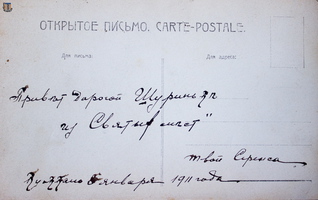 ОТКРЫТОЕ ПИСЬМО. CARTE-POSTALE.
Для письма.
Для адреса.
Привѣт дорогой
из Святых мѣст"
твой
января 1911 года